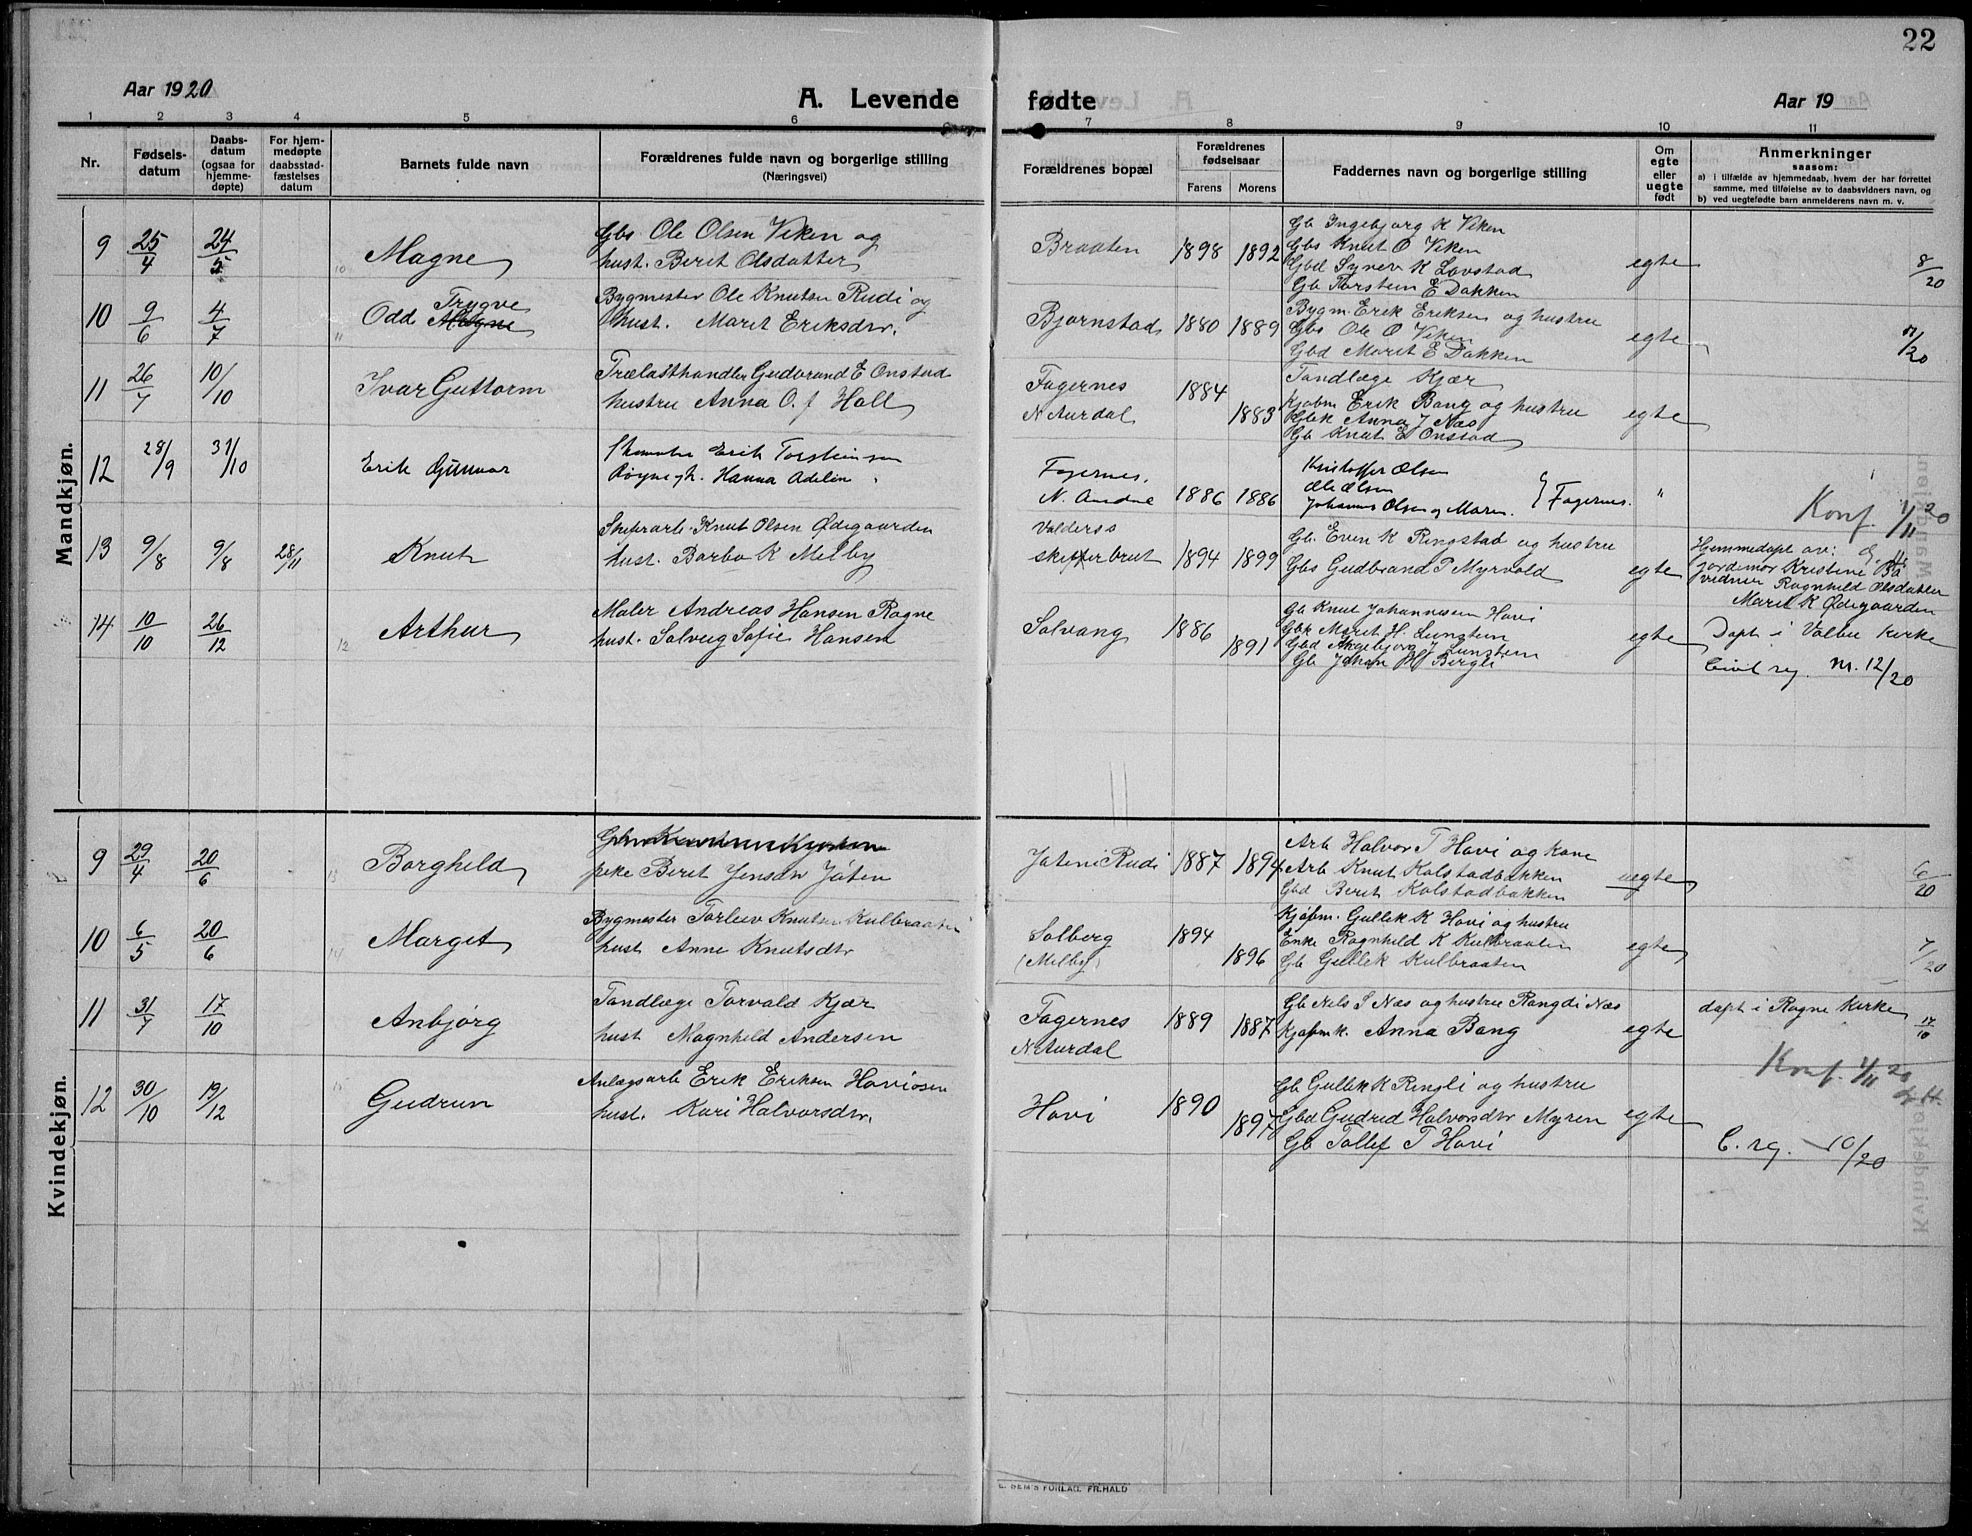 22
Aar 1920
A. Levende fødte
Aar 19
1 2 3 4 5 6 7 8 9 10 11
Nr.
Fødselsdatum
Daabsdatum (ogsaa for hjemmedøpte)
For hjemmedøpte daabsstadfæstelses datum
Barnets fulde navn
Forældrenes fulde navn og borgerlige stilling
(Næringsvei)
Forældrenes bopæl
Forældrenes fødselsaar
Farens Morens
Faddernes navn og borgerlige stilling
Om egte eller uegte født
Anmerkninger
saasom:
a) i tilfælde av hjemmedaab, hvem der har forrettet
samme, med tilføielse av to daabsvidners navn, og
b) ved uegtefødte barn anmelderens navn m. v.
Mandkjøn.
9 25/4 24/5 Magne
Gbs Ole Olsen Viken og
hust. Berit Olsdatter
Braaten 1898 1892
Gb Ingebjorg K Viken
Gbs Knut O Viken
Gbd Synev K Lovstad
Gb Torstein E Dokken
egte
8/20
10 9/6 4/7 Odd Trygve Magne
Bygmester Ole Knutsen Rudi og
hust. Marit Eriksdtr.
Bjørnstad 1880 1889
Bygm. Erik Eriksen og hustru
Gbs Ole O Viken
Gbd Marit E Dokken
egte
/20
11 26/7 10/10 Ivar Guttorm
Trælasthandler Gudbrand E Onstad
hustru Anna O. f Hall
Fagernes
N Aurdal
1884 1883
Tandlæge Kjær
Kjøbm Erik Bang og hustru
Gbk Anna J Næs
Gb Knut E Onstad
egte
12 28/9 31/10 Erik Gunnar
Erik Torsteinsen
Røyne h. Hanna Adelin
Fagernes.
N. Aurdal
1886 1886
Kristoffer Olsen
Ole Olsen
Johannes Olsen og Maren. } Fagernes.
"
Konf. 1/11 20
13 9/8 9/8 28/11 Knut
Skiferarb. Knut Olsen Ødegaarden
hust. Barbo K Melby
Valderss
skiferbrut
1894 1899
Gb. Even K Ringstad og hustru
Gbs Gudbrand T Myrvold
egte
Hjemmedøpt av:
jordemor Kristine Bø
vidner Ragnhild Olsdatter
Marit K Ødegaarden
14 10/10 26/12 Arthur
Maler Andreas Hansen Rogne
hust. Solveig Sofie Hansen
Solvang 1886 1891
Gb Knut Johannesen Hovi
Gbk Marit H. Lunstein
Gbd Ingebjorg J Lunstein
Gb Johan H Bergli
egte
Døpt i Volbu kirke
Civil reg. M. 12/20
Kvindekjøn.
9 29/4 20/6 Borghild
pike Berit Jensdtr Jøten
Jøten i Rudi 1887 1894
Arb Halvor T Hovi og kone
Arb Knut Kolstadbakken
Gbd Berit Kolstadbakken
uegte
6/20
10 6/5 20/6 Marget
Bygmester Torleiv Knutsen Kulbraaten
hust Anne Knutsdtr
Solberg
(Melby)
1894 1896
Kjøbm. Gullik K Hovi og hustru
Enke Ragnhild K Kulbraaten
Gb Gullik Kulbraaten
egte
7/20
11 31/7 17/10 Anbjørg
Tandlæge Torvald Kjær
hust Magnhild Andersen
Fagernes
N Aurdal
1889 1887
Gb Nels S Næs og hustru Rangdi Næs
Kjøbmk. Anna Bang
egte
døpt i Rogne Kirke 17/10
Konf. 1/11 20
12 30/10 19/12 Gudrun
Anlægsarb Erik Eriksen Hoviosen
hust. Kari Halvorsdtr.
Hovi 1890 1897
Gb Gullik K Ringli og hustru
Gbd Gudrid Halvorsdtr Myren
Gb Tollef T Hovi
egte
C. reg. 10/20
E. SEM'S FORLAG. FR.HALD